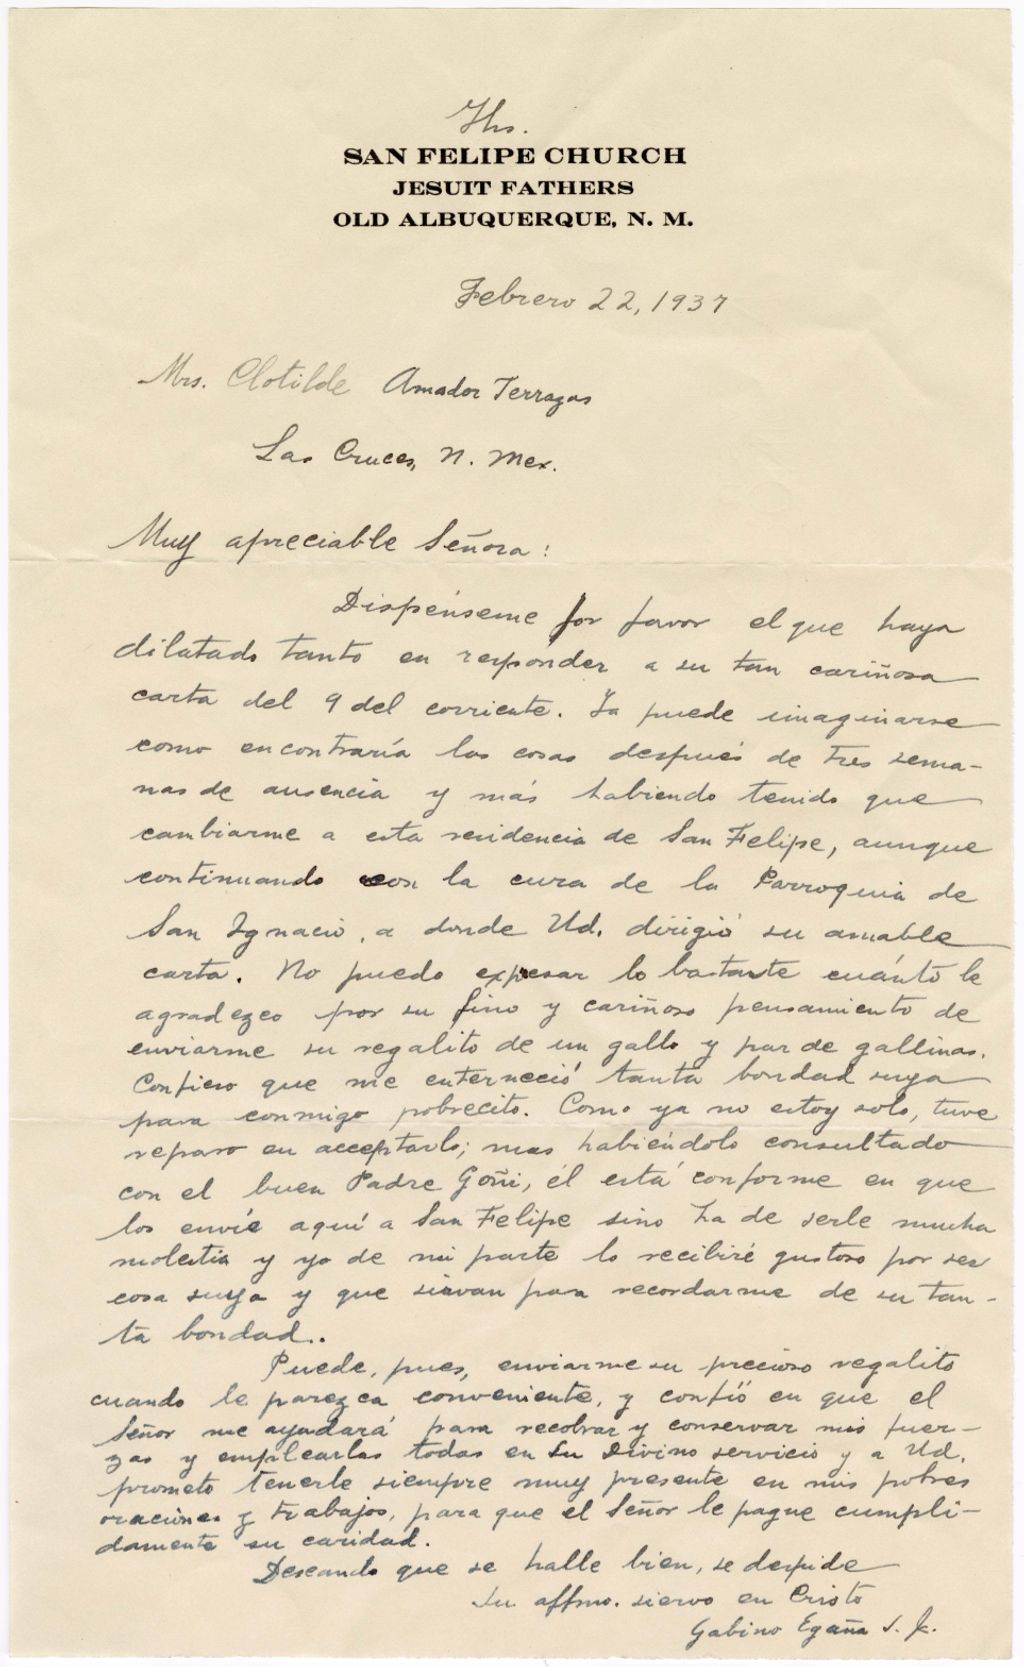 Jhs.
SAN FELIPE CHURCH
JESUIT FATHERS
OLD ALBUQUERQUE, N. M.
Febrero 22, 1937
Mrs. Clotilde Amador Terrazas
Las Cruces, N. Mex.
Muy apreciable Señora:
Dispénseme por favor el que haya
dilatado tanto en responder a su tan cariñosa
carta del 9 del corriente. Ya puede imaginarse
como encontraría las cosas después de tres sema-
nas de ausencia y más habiendo tenido que
cambiarme a esta residencia de San Felipe, aunque
continuando con la cura de la Parroquia de
San Ignacio, a donde Ud. dirigió su amable
carta. No puedo expesar lo bastante cuánto le
agradezco por su fino y cariñoso pensamiento de
enviarme su regalito de un gallo y par de gallinas.
Confieso que me enterneció tanta bondad suya
para conmigo pobrecito. Como ya no estoy solo, tuve
reparo en acceptarlo; mas habiéndolo consultado
con el buen Padre Goñi, él está conforme en que
los envíe aquí a San Felipe sino ha de serle mucha
molestia y yo de mi parte lo recibiré gustoso por ser
cosa suya y que sirvan para recordarme de su tan-
ta bondad..
Puede, pues, enviarme su precioso regalito
cuando le parezca conveniente, y confío en que el
Señor me ayudará para recobrar y conservar mis fuer-
zas y emplearlas todas en Su Divino servicio y a Ud.
prometo tenerle siempre muy presente en mis pobres
oraciones y trabajos, para que el Señor le pague cumpli-
damente su caridad.
Deseando que se halle bien, se despide
Su affmo. siervo en Cristo
Gabino Egaña S. J.